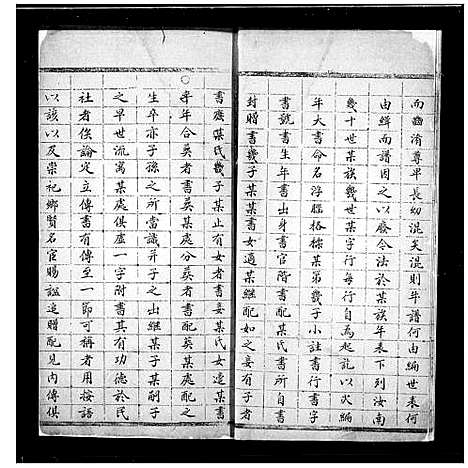 而幽淆尊卑長幼混矣混則年譜何由編世表何
由緝而譜因之以廢令法於某族年表下列汝南
幾十世某族幾世某字行每行自為起訖以次編
年大書命名浮膽格標某第幾子小註書行書字
書號書生年書出身書官階書配某氏書所自書
封贈書幾子某某書女適某継配如之妾有子者
書庶某氏幾子某止有女者書妾某氏女適某書
卒年合葬者書葬某處分葬者書配葬某處配之
生卒亦子孫之所當識并子之出継某子某嗣子
之早世流寓某處俱虛一字附書其有功德於民
社者俟論定立傳書有傳至一節可稱者用按語
以該以及崇祀鄉賢名宦賜謚追贈配見内傳俱